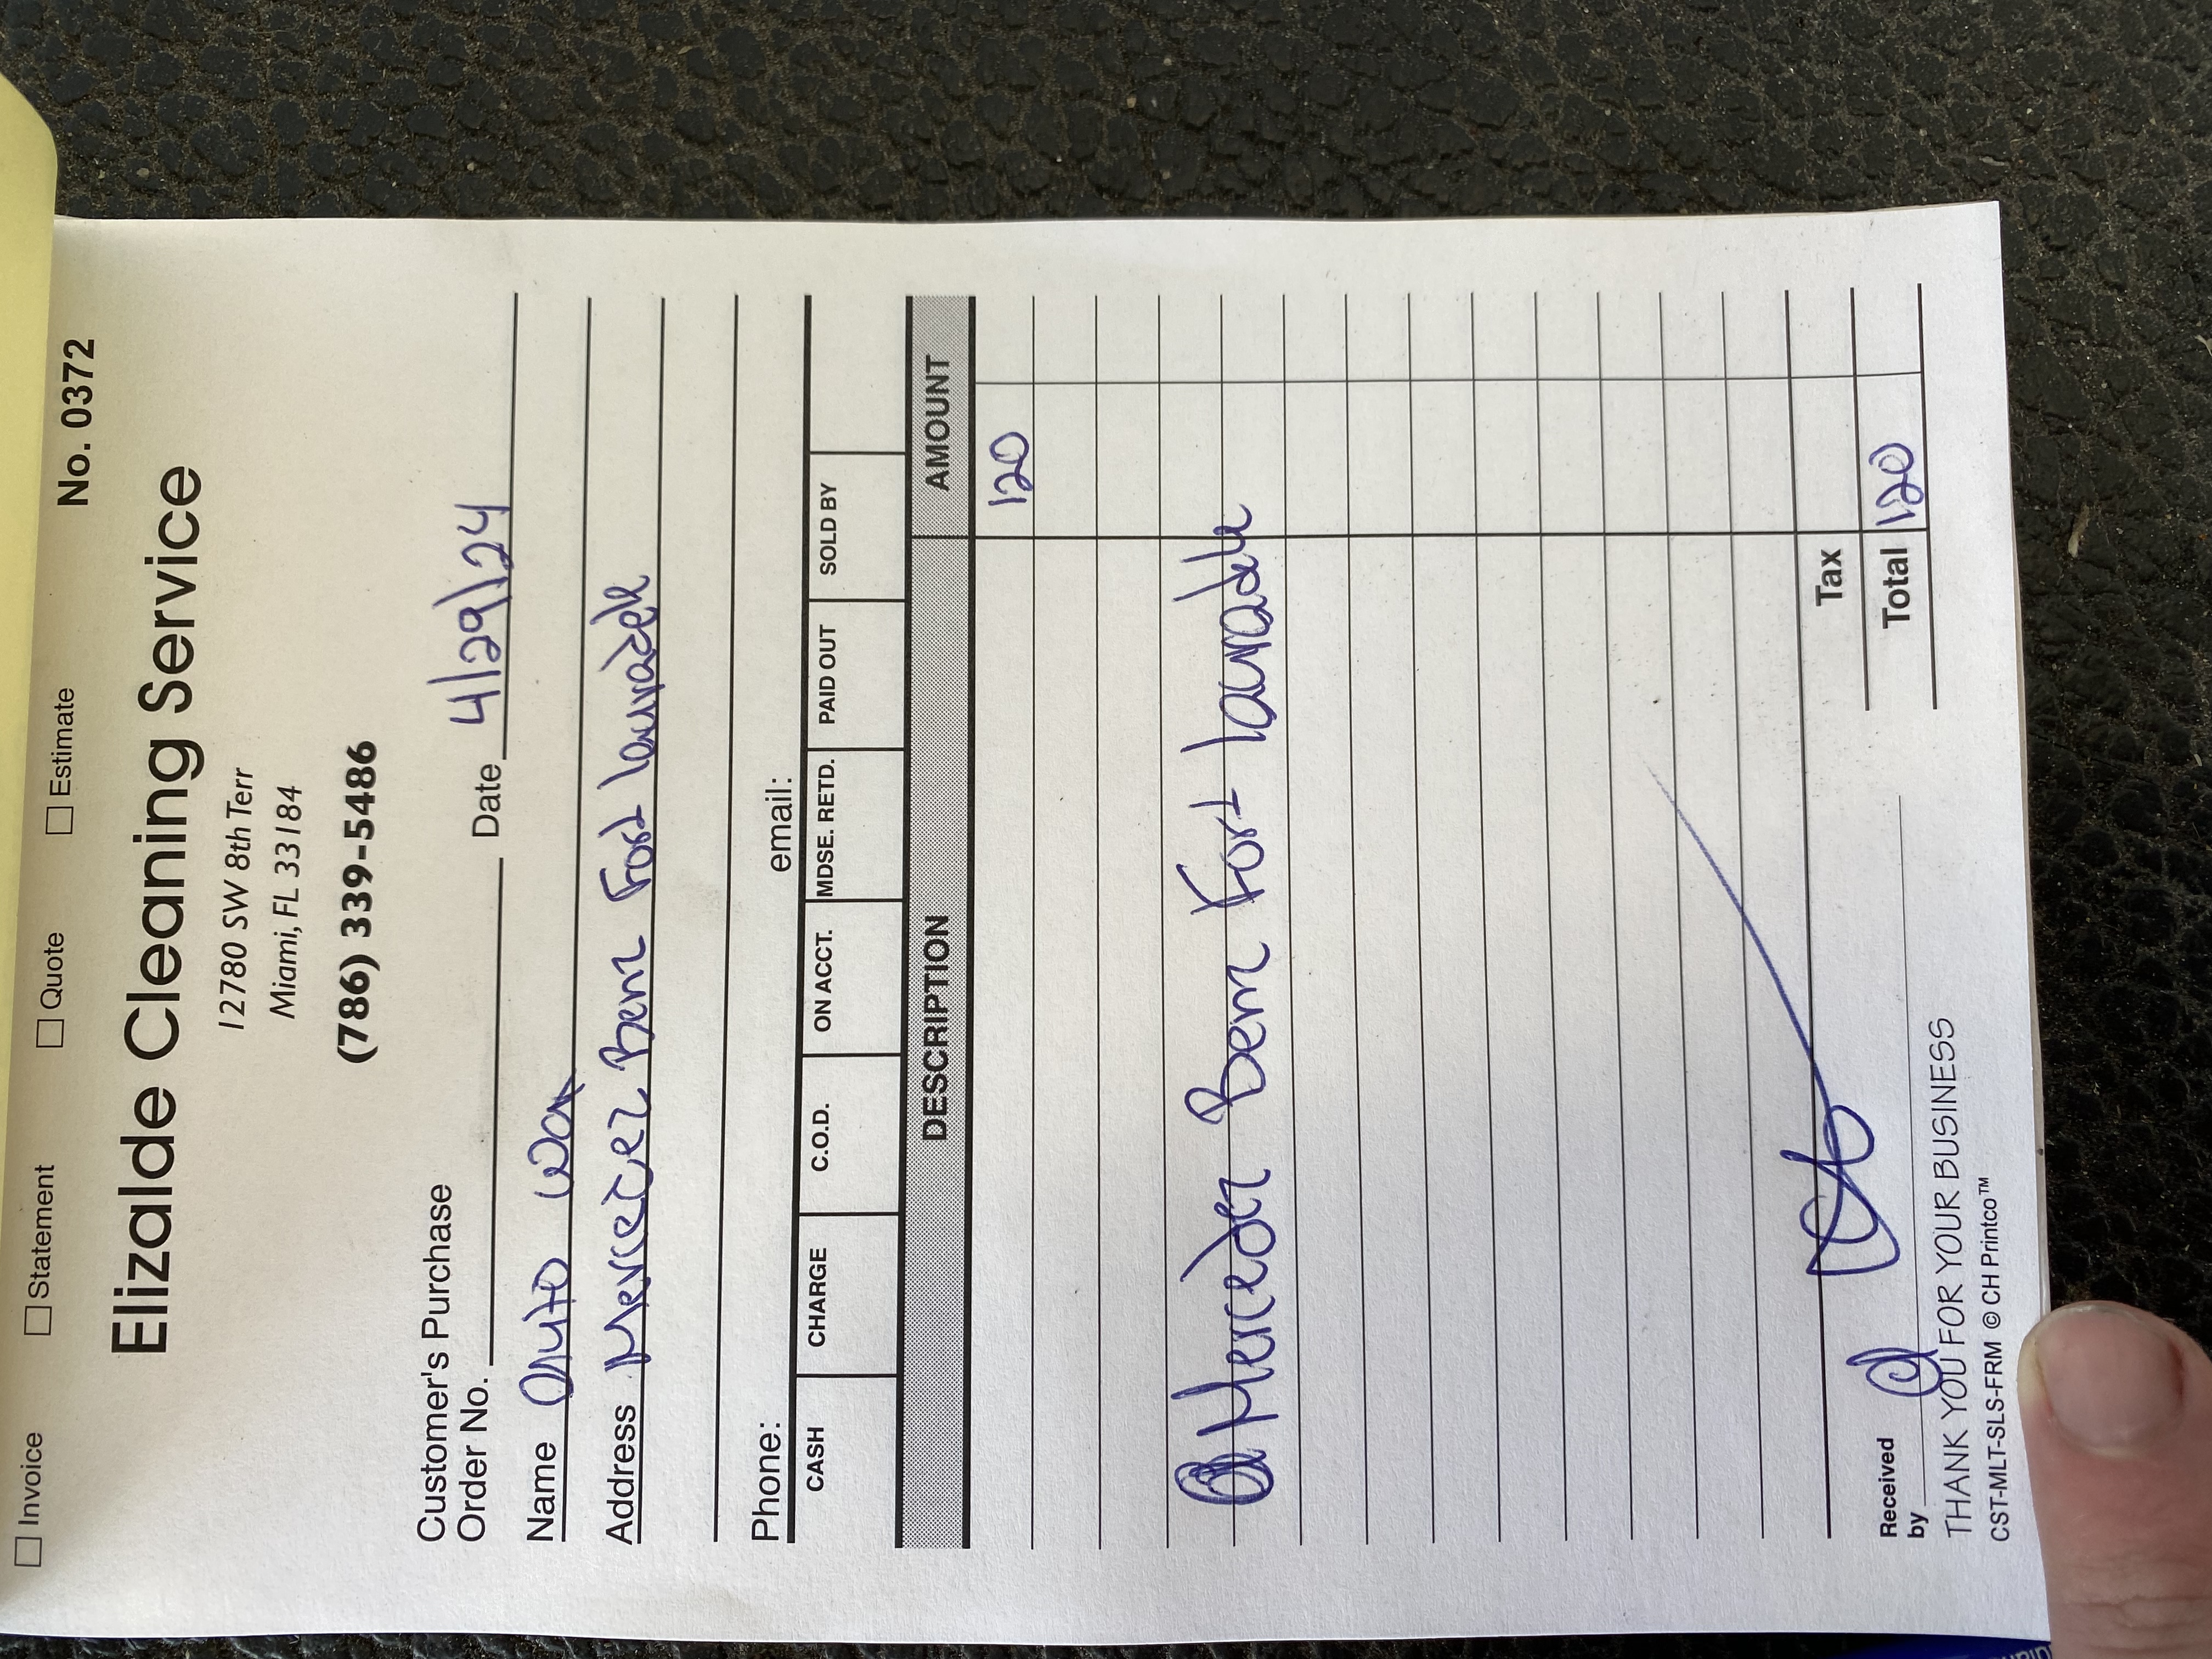 ☐ Invoice ☐ Statement ☐ Quote ☐ Estimate No. 0372
Elizalde Cleaning Service
12780 SW 8th Terr
Miami, FL 33184
(786) 339-5486
Customer's Purchase
Order No. Date 4/29/24
Name Auto wax
Address Mercedez Benz Fort lauradale
Phone: email:
CASH CHARGE C.O.D. ON ACCT. MDSE. RETD. PAID OUT SOLD BY
DESCRIPTION AMOUNT
120
Mercedez Benz Fort lauradale
Tax
Total 120
Received
by
THANK YOU FOR YOUR BUSINESS
CST-MLT-SLS-FRM © CH Printco™